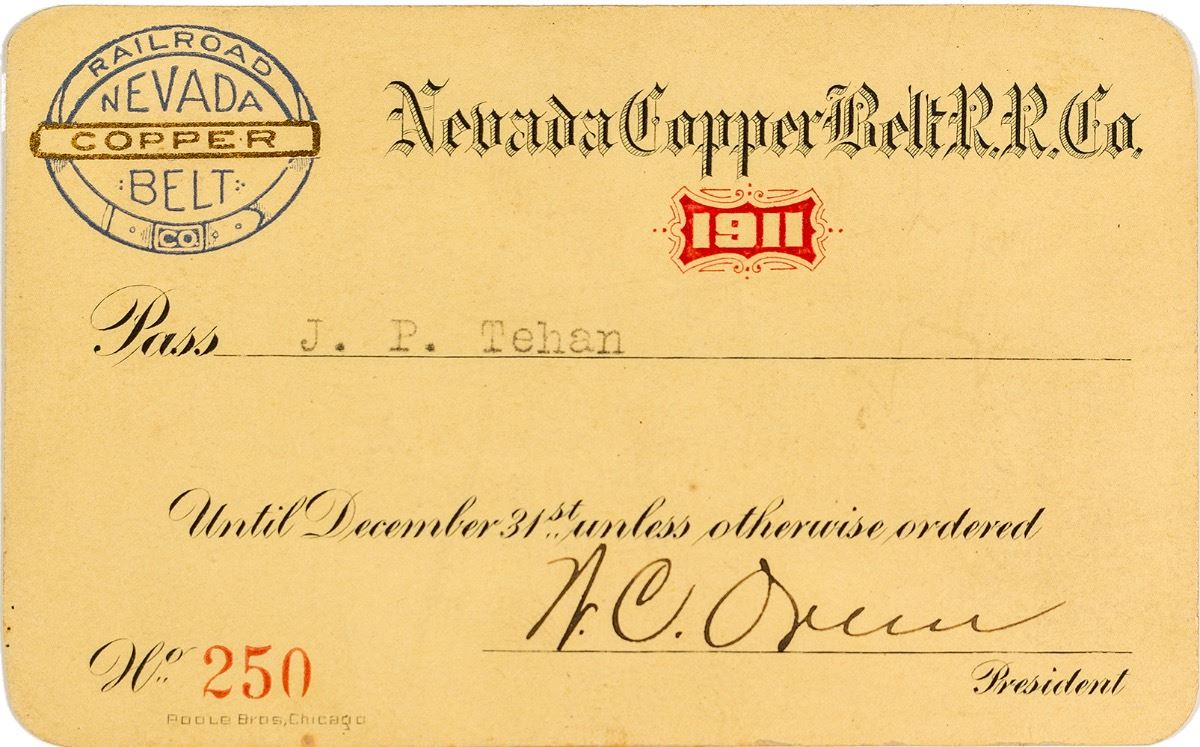 RAILROAD
NEVADA
COPPER
BELT
CO.
Nevada Copper Belt R.R. Co.
1911
Pass J. P. Tehan
Until December 31st unless otherwise ordered
No. 250
President
Poole Bros, Chicago